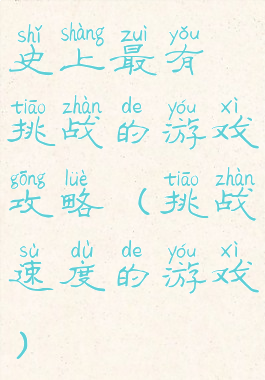 shǐ shàng zuì yǒu
史上最有
tiāo zhàn de yóu xì
挑战的游戏
gōng lüè tiāo zhàn
攻略(挑战
sù dù de yóu xì
速度的游戏
)